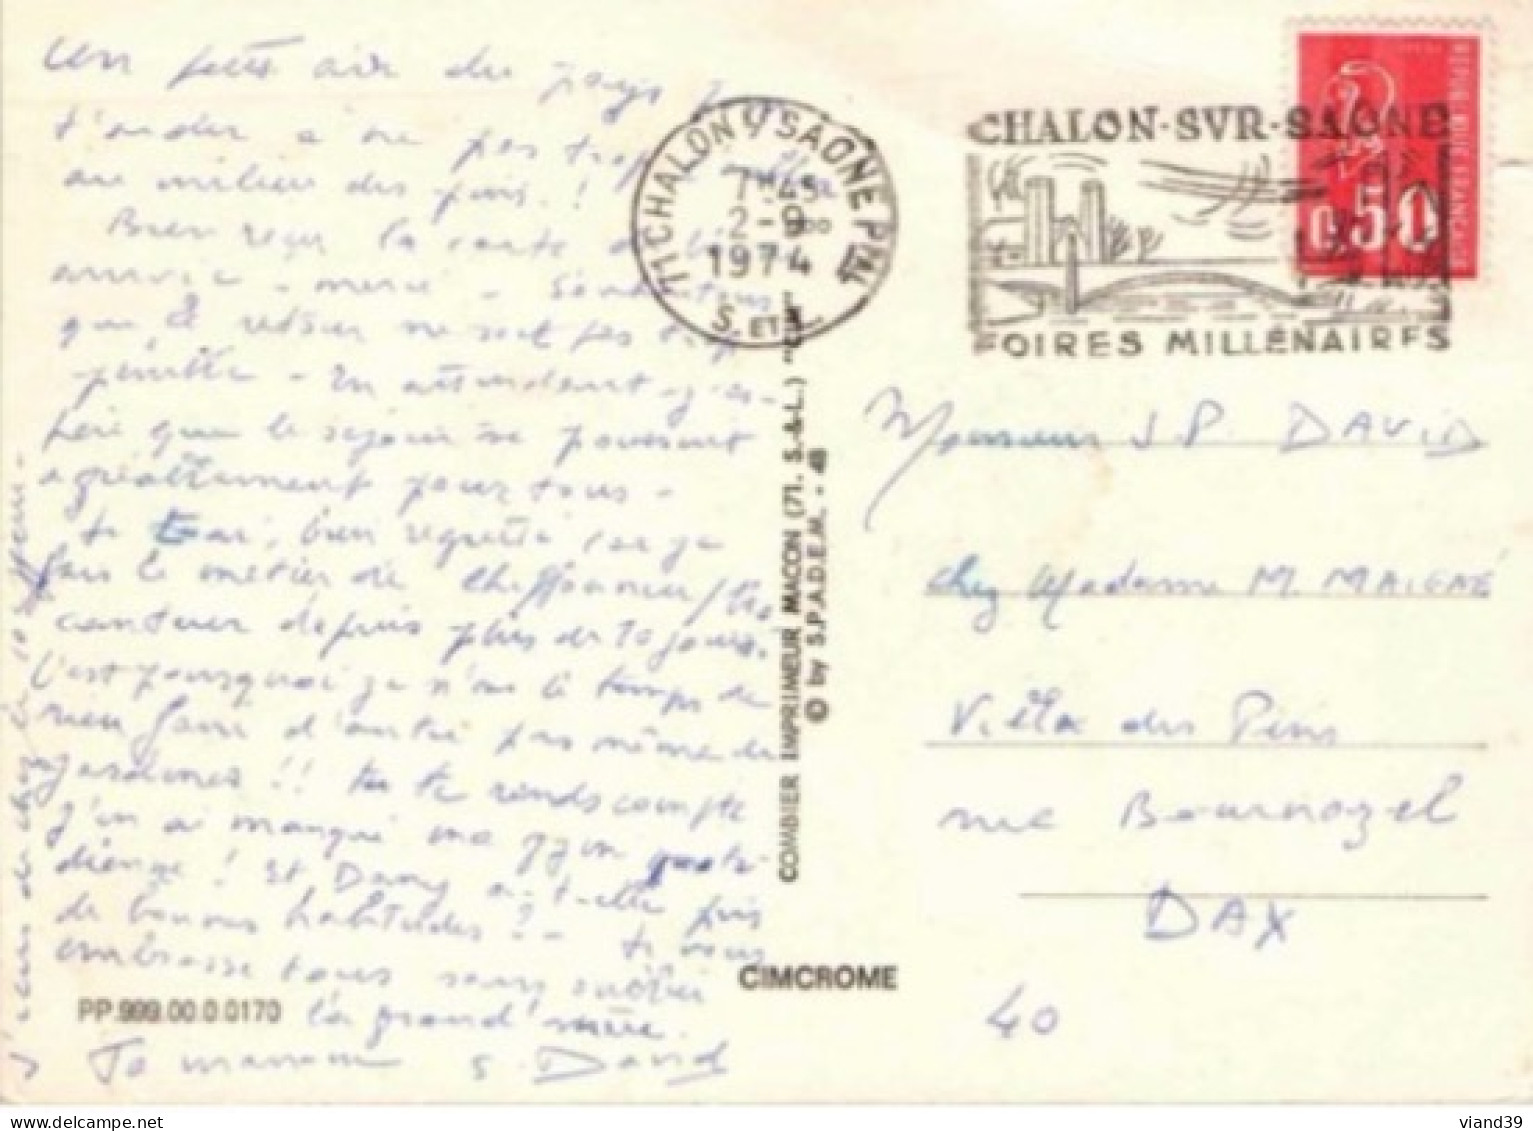 Un petit air du pays p
t'aider à ne pas trop
au milieu des pins !
Bien reçu la carte
arrivée - merci -
que le retour ne soit pas trop
pénible - En attendant j'es-
père que le séjour se poursuit
agréablement pour tous -
Je t'ai bien regretté car je
fais le métier de chiffonnier/bro
canteur depuis plus de 10 jours.
C'est pourquoi je n'ai le temps de
rien faire d'autre pas même de
jardiner !! tu te rends compte
J'en ai manqué ma gym quoti-
dienne ! Et Dany a-t-elle pris
de bonnes habitudes ? - Je vous
embrasse tous sans oublier
la grand'mère.
Ta maman S. David
PP.999.00.0.0170
71 CHALON S/ SAONE PPAL
7H45
2-9
1974
S. ET L.
CHALON-SVR-SAONE
FOIRES MILLÉNAIRES
0.50
COMBIER IMPRIMEUR MACON (71. S.-&-L.) "CIM"
© by S.P.A.D.E.M. - 48
CIMCROME
Monsieur J.P. DAVID
chez Madame M. MAIGNÉ
Villa des Pins
rue Bournazel
DAX
40
viand39